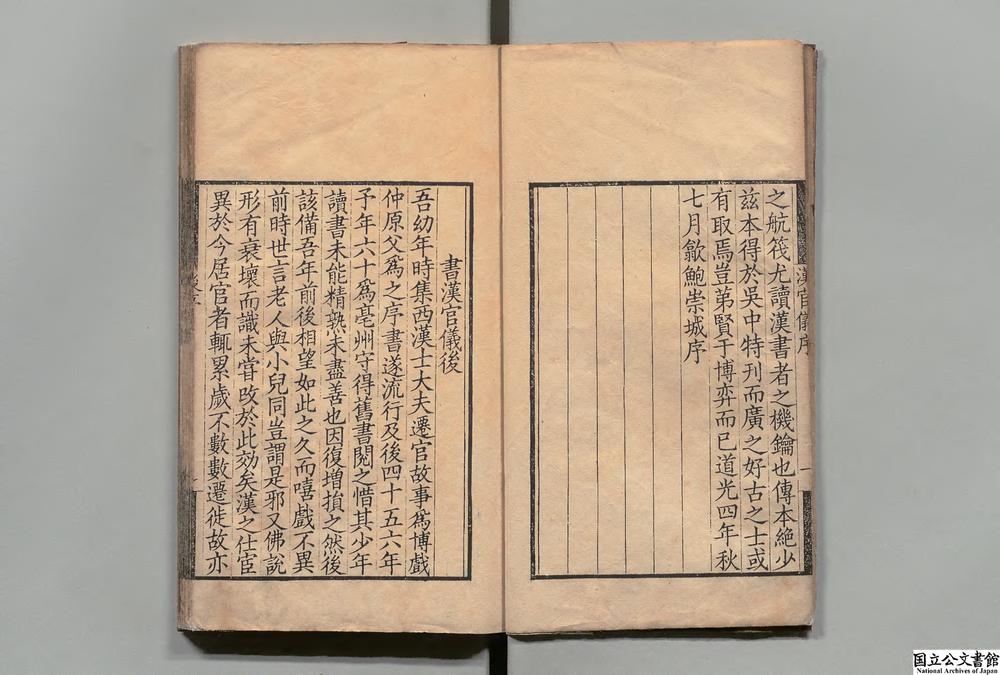 漢官儀序
之航筏尤讀漢書者之機鑰也傳本絶少
兹本得於吳中特刊而廣之好古之士或
有取焉豈苐賢于博弈而已道光四年秋
七月歙鮑崇城序
書漢官儀後
吾幼年時集西漢士大夫遷官故事爲博戲
仲原父爲之序書遂流行及後四十五六年
予年六十爲亳州守得舊書閱之惜其少年
讀書未能精熟未盡善也因復增損之然後
該備吾年前後相望如此之久而嘻戲不異
前時世言老人與小兒同豈謂是邪又佛説
形有衰壞而識未甞改於此効矣漢之仕宦
異於今居官者輒累歲不數數遷徙故亦
国立公文書館
National Archives of Japan